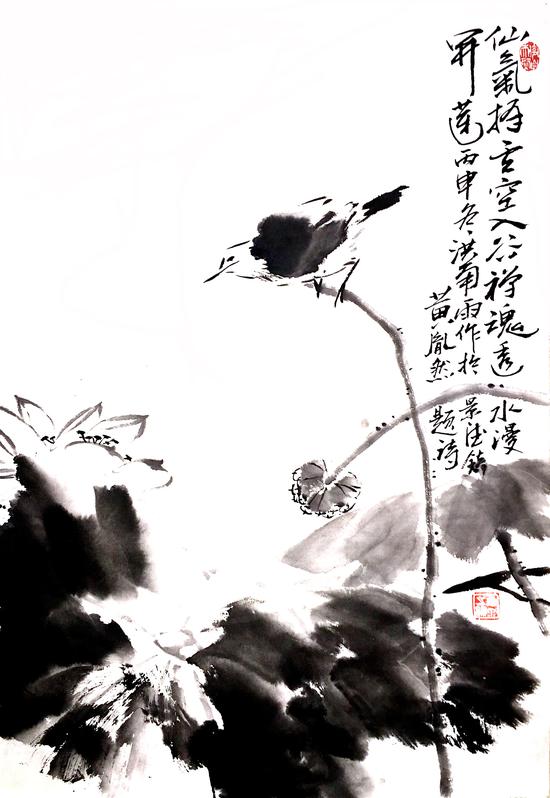 仙氣雲空入谷禪魂透水漫
開蓮丙申冬洪南雨作於景德鎮
黄胤然題詩